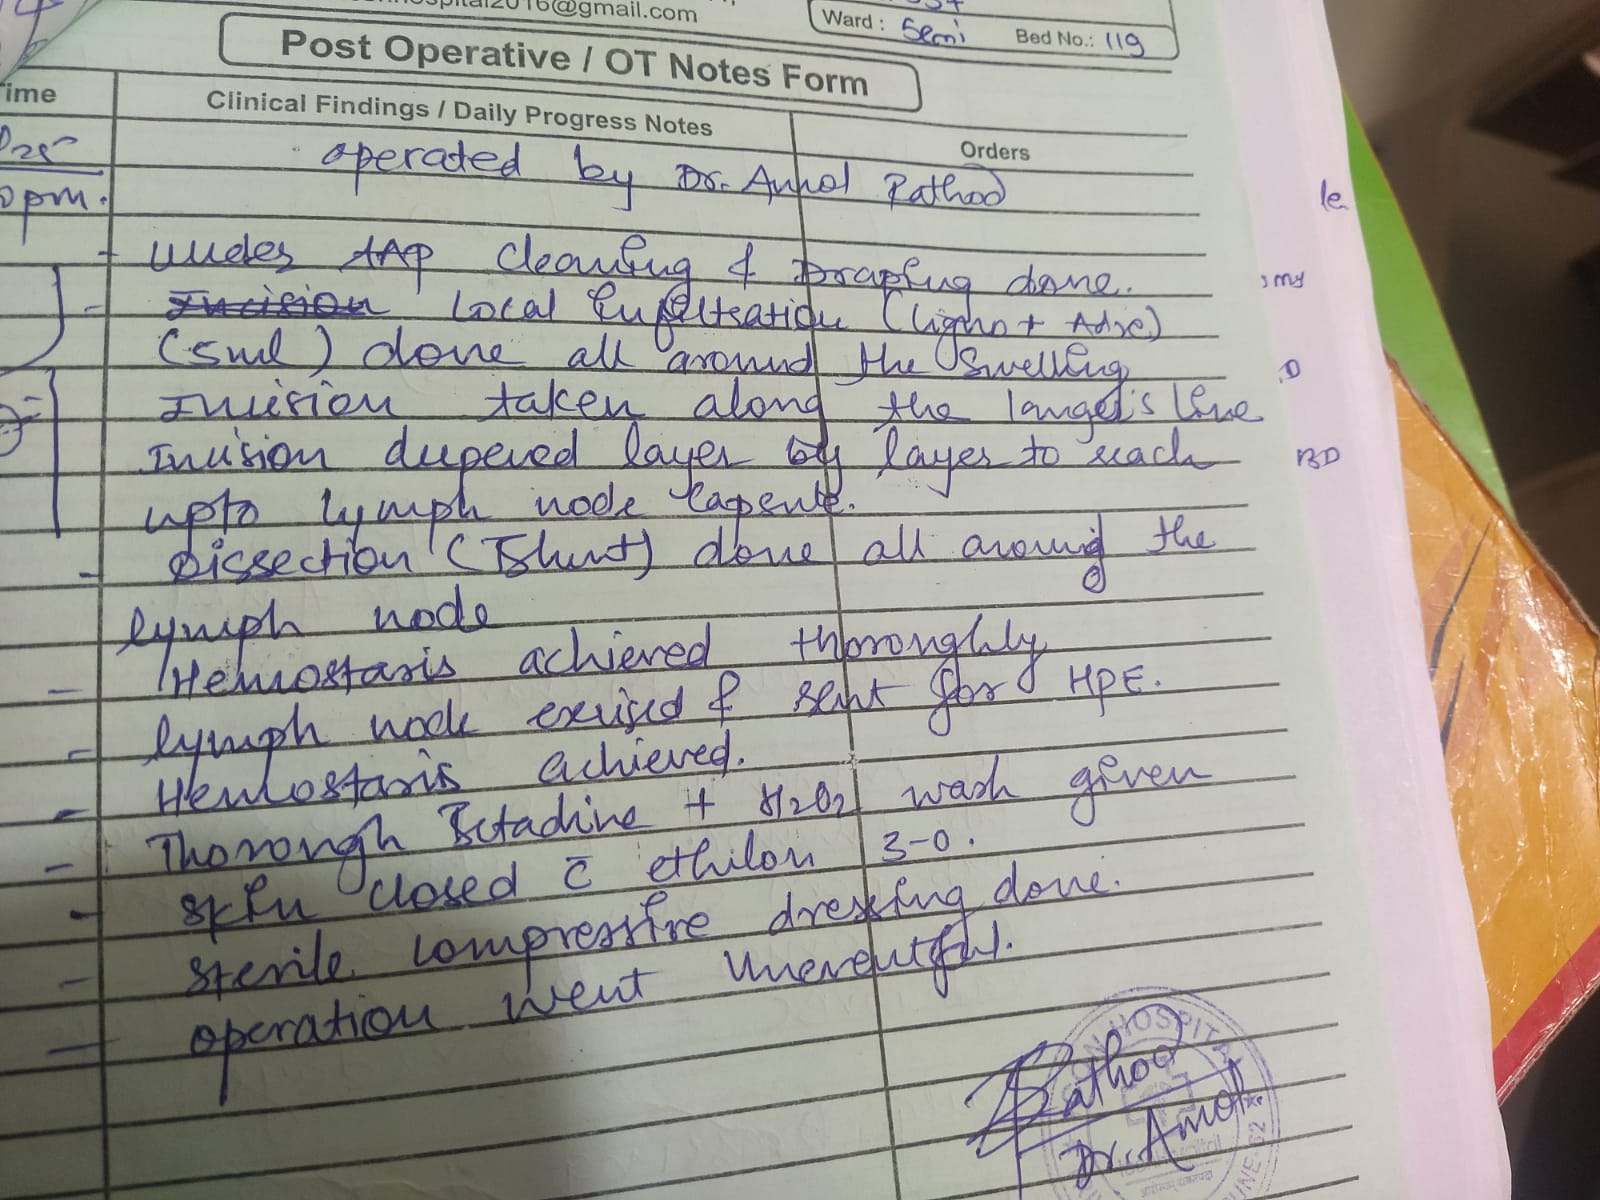 hospital2016@gmail.com
Ward : Semi Bed No.: 119
Post Operative / OT Notes Form
Time
Clinical Findings / Daily Progress Notes
Orders
operated by Dr. Amol Rathod
pm.
- under AAP cleaning & Draping done.
- Incision Local Infiltration (Ligno + Adre)
(5ml) done all around the swelling
Incision taken along the langer's line
Incision deepened layer by layer to reach
upto lymph node capsule.
- Dissection (Blunt) done all around the
lymph node
- Hemostasis achieved thoroughly
- lymph node excised & sent for HPE.
- Hemostasis achieved.
- Thorough Betadine + H2O2 wash given
- skin closed c̄ ethilon 3-0.
- sterile compressive dressing done.
- operation went uneventful.
BD
HOSPITAL
Rathod
Dr. Amol